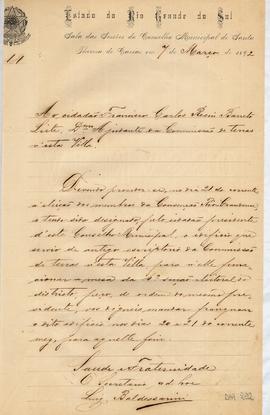 Estado do Rio Grande do Sul
Sala das Sessões do Conselho Municipal de Santa
Thereza de Caxias em 7 de Março de 1892
Ao cidadão Francisco Carlos Resin Barreto
Leite, Dmo Ajudante da Commissão de terras
n'esta Villa.
Devendo proceder-se, no dia 21 do corrente
a eleição dos membros do
e tendo sido designado, pelo cidadão presidente
d'este Conselho Municipal, o edificio que
servio de antigo escriptorio da Commissão
de terras n'esta Villa para n'elle func-
cionar a mesa da secção eleitoral do
districto, peço, de ordem do mesmo Pre-
sidente, vos digneis mandar franquear
o dito edificio nos dias 20 e 21 do corrente
mez, para aquelle fim.
Saude e Fraternidade
O Secretario ad hoc
Luiz Baldessarini